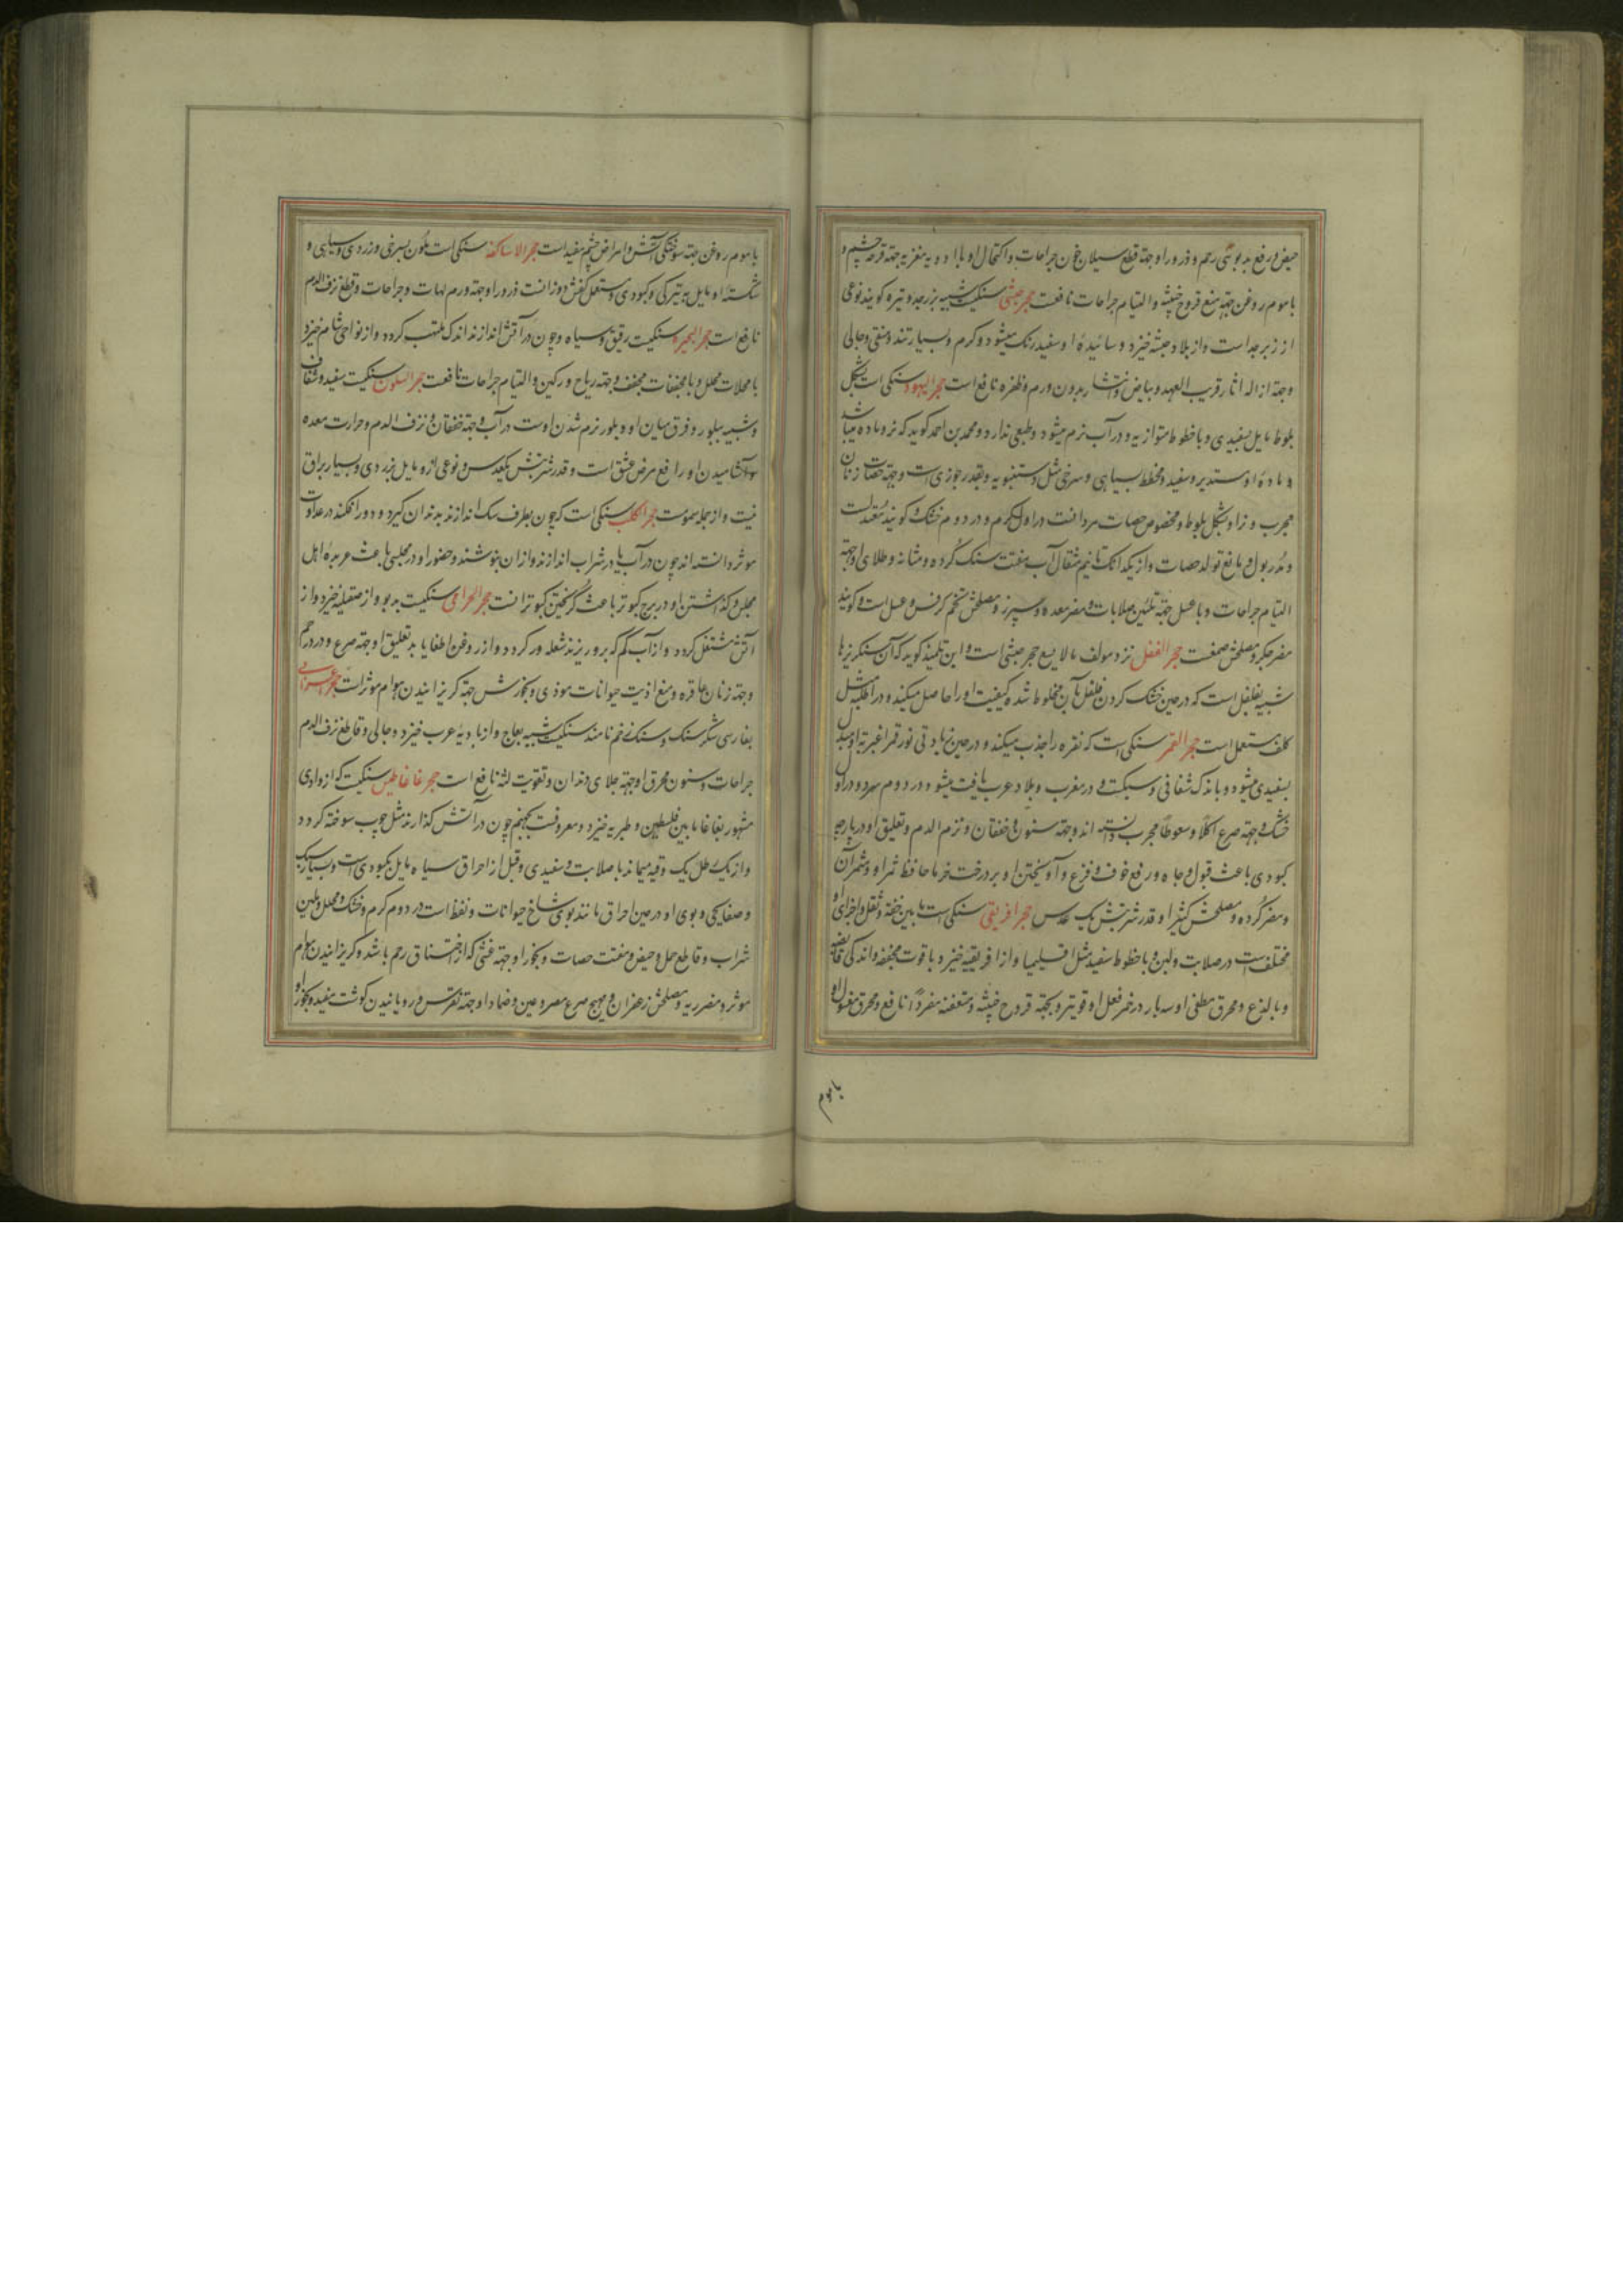 حیض و رفع بدبوئی رحم و ذرور او جهة قطع سیلان خون جراحات و اکتحال او با ادویه مغریه جهة قرحه چشم و
با موم روغن جهة منع قروح خبیثه و التیام جراحات نافعست حجر حبشی سنکیست شبیه بزبرجد و تیره کویند نوعی
از زبرجد است و از بلاد حبشه خیزد و سائیدهٔ او سفید رنک میشود و کرم و بسیار تند و منقی و جالی
و جهة ازاله اثار قریب العهد و بیاض و انتشار بدون ورم و ظفره نافع است حجر الیهود سنکی است بشکل
بلوط مایل بسفیدی و با خطوط متوازیه و در آب نرم میشود و طعمی ندارد و محمد بن احمد کوید که نر و ماده میباشد
و مادهٔ او مستدیر و سفید و مخطط بسیاهی و سرخی مثل دستنبویه و بقدر جوزی است و جهة حصات زنان
مجرب و نر او بشکل بلوط و مخصوص حصات مردانست در اول کرم و در دوم خشک و کویند معتدلست
و مدر بول و مانع تولد حصات و از یکدانک تا نیم مثقال آب مفتت سنک کرده و مثانه و طلای او جهة
التیام جراحات و با عسل جهة تلیین صلابات و مضر معده و سپرز و مصلحش تخم کرفس و عسل است و کویند
مضر جکر و مصلحش صمغست حجر الفلفل نزد مولف مالایسع حجر حبشی است و ابن تلمیذ کوید که آن سنکریزها
شبیه بفلفل است که در حین خشک کردن فلفل بآن مخلوط شده کیفیت او را حاصل میکند و در اطلیه مثل
کلف مستعمل است حجر القمر سنکی است که نقره را جذب میکند و در حین زیادتی نور قمر اغبریة او مبدل
بسفیدی میشود و با اندک شفافی و سبکست و در مغرب و بلاد عرب یافت میشود در دوم سرد و در اول
خشک و جهة صرع اکلا و سعوطا مجرب دانسته اند و جهة سنون و خفقان و نزم الدم و تعلیق او در پارچه
کبودی باعث قبول و جاه و رفع خوف و فزع و آویختن او بر درخت خرما حافظ ثمر او و مثمر آن
و مضر کرده و مصلحش کثیرا و قدر شربتش یک عدس حجر افریقی سنکی است ما بین خفة و ثقل و اجزای او
مختلف است در صلابت و لین و با خطوط سفید مثل اقلیمیا و از افریقیه خیزد و با قوت مجففه و اندکی قابضه
و با لذع و محرق مطفی او سه بار در خمر فعل او قویتر و بجهة قروح خبیثه و متعفنه مفردا نافع و محرق مغسول او
با موم
با موم روغن جهة سوختکی آتش و امراض چشم مفید است حجر الاساکفه سنکی است ملون بسرخی و زردی و سیاهی و
شکستهٔ او مایل به تیرکی و کبودی و مستعمل کفش دوزانست ذرور او جهة ورم لهات و جراحات و قطع نزف الدم
نافع است حجر البحیره سنکیست رقیق و سیاه و چون در آتش اندازند اندک ملتهب کردد و از نواحی شام خیزد
با محللات محلل و با مجففات مجفف و جهة ریاح ورکین و التیام جراحات نافعست حجر السلون سنکیست سفید و شفاف
و شبیه ببلور و فرق میان او و بلور نرم شدن اوست در آب و جهة خفقان و نزف الدم و حرارت معده
و آشامیدن او رافع مرض عشق است و قدر شربتش یکعدس و نوعی از و مایل بزردی و بسیار براق
نیست و از جمله سمومست حجر الکلب سنکی است که چون بطرف سک اندازند بدندان کیرد و دور افکند در عداوت
موثر دانسته اند چون در آب یا در شراب اندازند و از ان بنوشند و حضور او در مجلسی باعث عربدهٔ اهل
مجلس و کذاشتن او در برج کبوتر باعث کریختن کبوترانست حجر العراقی سنکیست بدبو و از صقلیه خیزد و از
آتش مشتعل کردد و از آب کم که برو ریزند شعله ور کردد و از روغن اطفا یابد تعلیق او جهة صرع و درد رحم
و جهة زنان عاقره و منع اذیت حیوانات موذی و بخورش جهة کریزانیدن هوام موثر است حجر اعرابی
بفارسی شکر سنک و سنک زخم نامند سنکیست شبیه بعاج و از بادیهٔ عرب خیزد و جالی و قاطع نزف الدم
جراحات و سنون محرق او جهة جلای دندان و تقویت لثه نافع است حجر غاغاطیس سنکیست که از وادی
مشهور بغاغا ما بین فلسطین و طبریه خیزد و معروفست بجهنم چون در آتش کذارند مثل چوب سوخته کردد
و از یک رطل یک وقیه میماند با صلابت و سفیدی و قبل از احراق سیاه مایل بکبودی است و بسیار سبک
و صفایحی و بوی او در حین احراق مانند بوی شاخ حیوانات و نفط است در دوم کرم و خشک و محلل و ملین
شراب و قاطع حمل و حیض و مفتت حصات و بخور او جهة غشی که از اختناق رحم باشد و کریزانیدن هوام
موثر و مضر ریه و مصلحش زعفران و مهیج صرع مصروعین و ضماد او جهة نقرس و رویانیدن کوشت مفید و بخور او